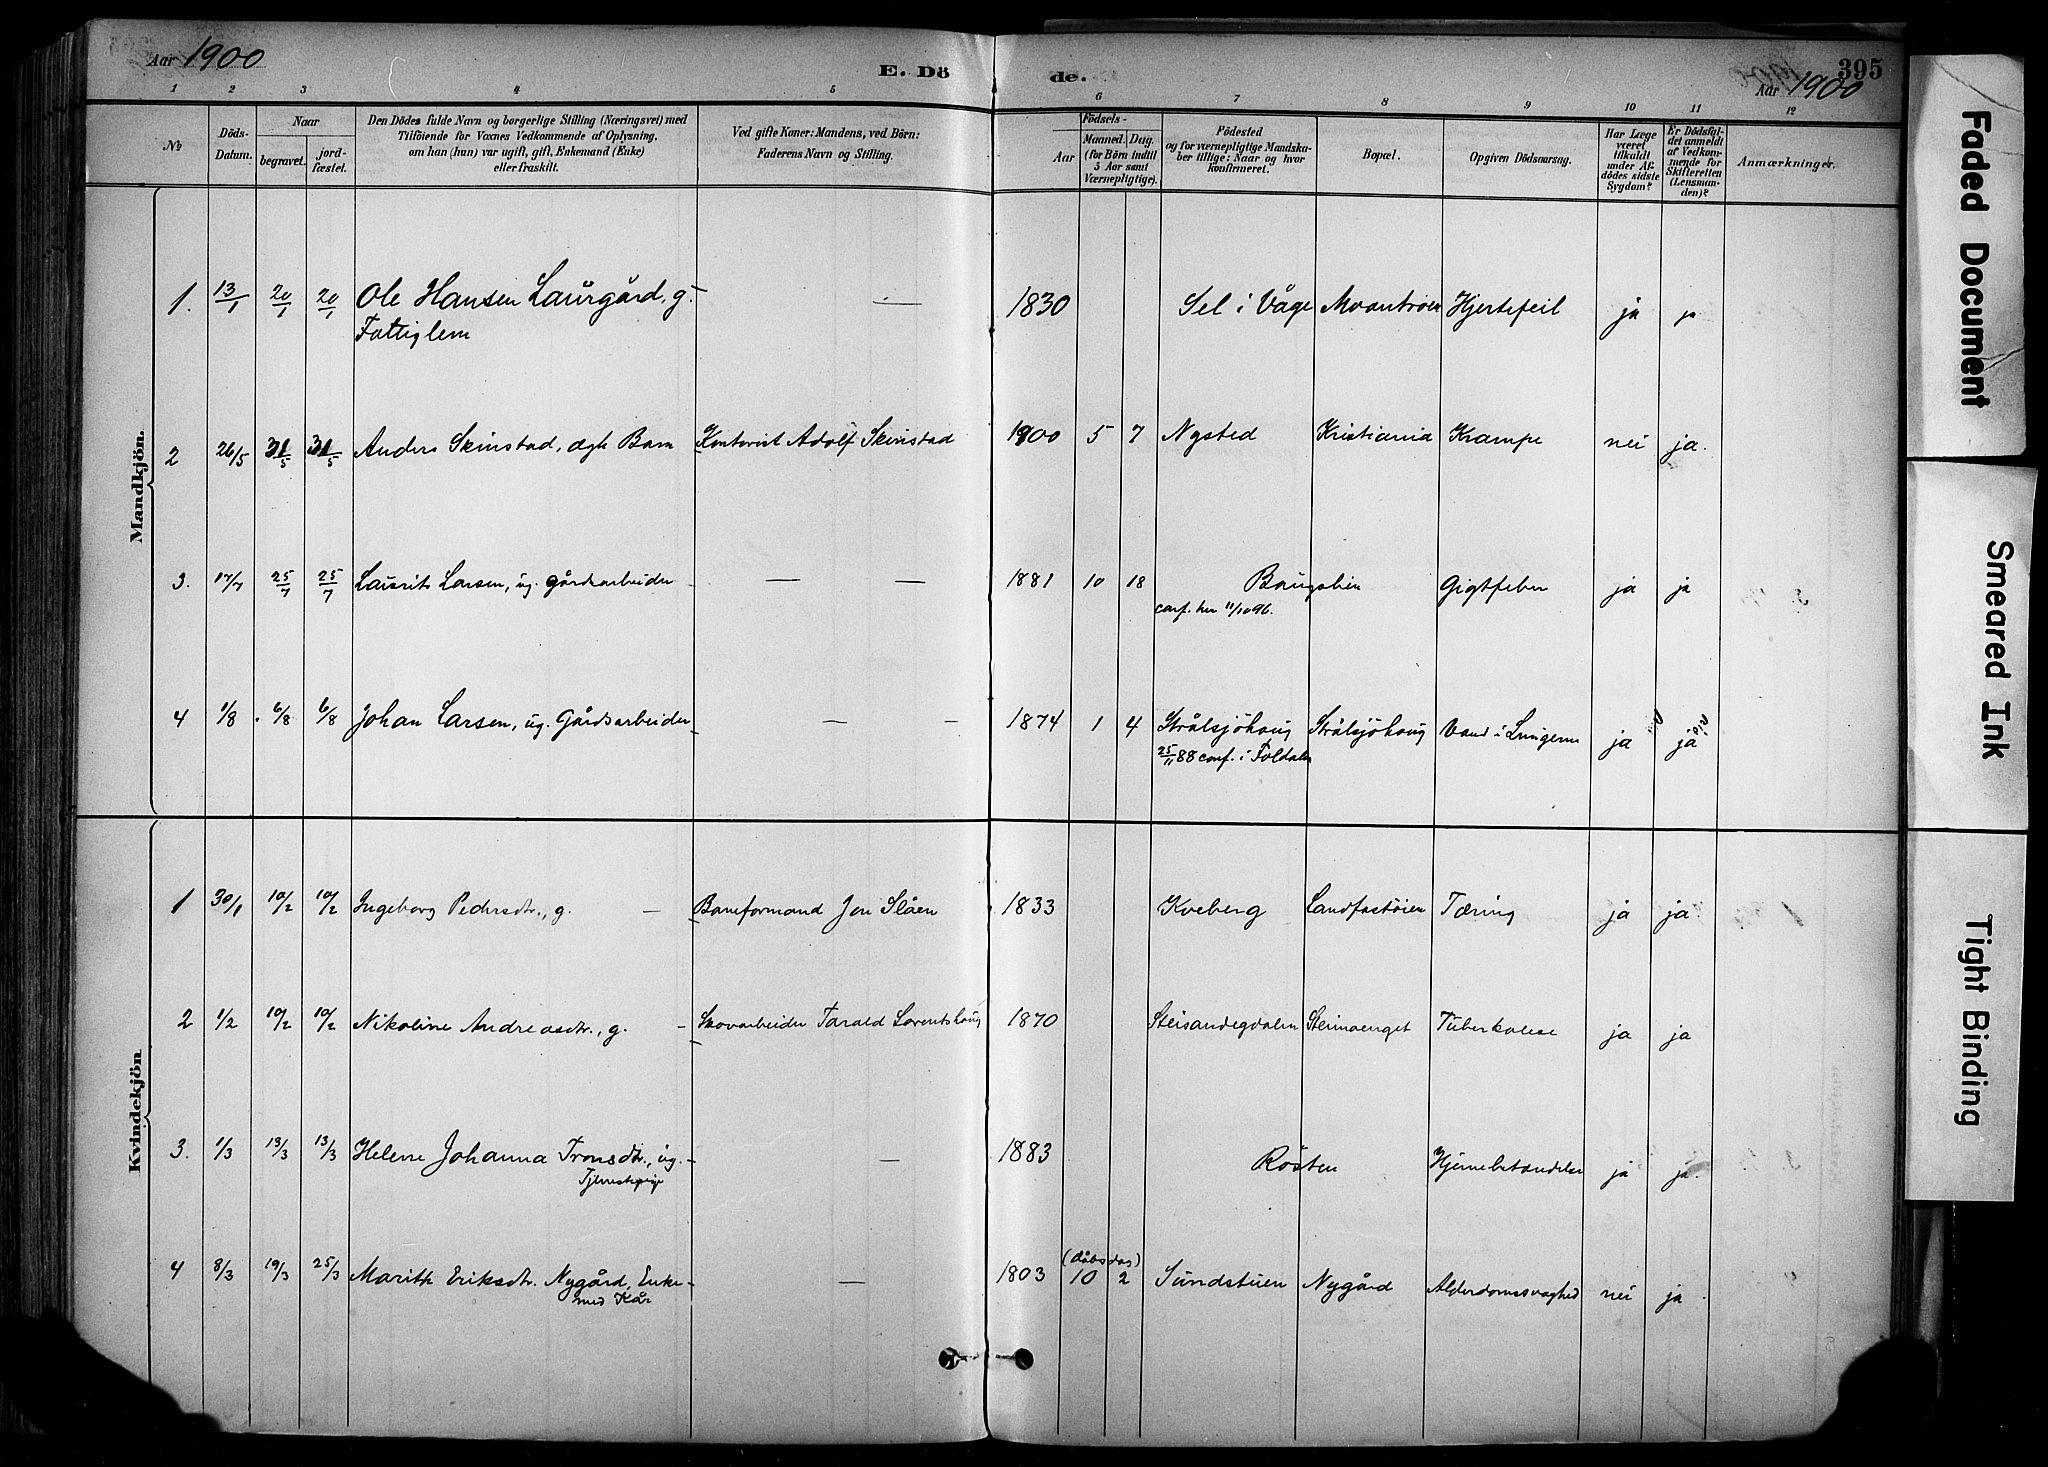 Aar 1900
E. Dö
de.
395
Aar 1900
1 2 3 4 5 6 7 8 9 10 11 12
No
Döds-
Datum.
Naar
begravet.
jord-
fæstet.
Den Dödes fulde Navn og borgerlige Stilling (Næringsvei) med
Tilföiende for Voxnes Vedkommende af Oplysning,
om han (hun) var ugift, gift, Enkemand (Enke)
eller fraskilt.
Ved gifte Koner: Mandens, ved Börn:
Faderens Navn og Stilling.
Födsels-
Aar
Maaned.
Dag.
(for Börn indtil
5 Aar samt
Værnepligtige).
Födested
og for værnepligtige Mandska-
ber tillige: Naar og hvor
konfirmeret.
Bopæl.
Opgiven Dödsaarsag.
Har Læge
været
tilkaldt
under Af-
dödes sidste
Sygdom?
Er Dödsfal-
det anmeldt
af Vedkom-
mende for
Skifteretten
(Lensman-
den)?
Anmærkninger.
Mandkjön.
1. 13/1 20/1 20/1 Ole Hansen Laurgård, g. — 1830 Sel i Våge Moantröen Hjertefeil ja ja
Fattiglem
2 26/5 31/5 31/5 Anders Skinstad, ægte Barn Kontorist Adolf Skinstad 1900 5 7 Nysted Kristiania Krampe nei ja.
3. 17/7 25/7 25/7 Laurits Larsen, ug. gårdsarbeider — — 1881 10 18 Baugslien Gigtfeber ja ja
conf. her 11/10 96.
4 1/8 6/8 6/8 Johan Larsen, ug. Gårdsarbeider — — 1874 1 4 Strålsjöhaug Strålsjöhaug Vand i Lungerne ja ja
25/11 88 conf. i Foldalen
Kvindekjön.
1 30/1 10/2 10/2 Ingeborg Pedersdtr., g. — Baneformand Jon Slåen 1833 Kveberg Landfastöien Tæring ja ja
2 1/2 10/2 10/2 Nikoline Andreasdtr., g. - Skovarbeider Tarald Lorentshaug 1870 Steisandegdalen Steimoenget Tuberkulose ja ja
3. 1/3 13/3 13/3 Helene Johanna Tronsdtr., ug. — 1883 Rösten Hjernebetændelse ja ja.
Tjenestepige
4 8/3 19/3 25/3 Marith Eriksdtr. Nygård, Enke — 1803 10 2 Sundstuen Nygård Alderdomssvaghed nei ja
med Kår
(dåbsdag)
Faded Document
Smeared Ink
Tight Binding